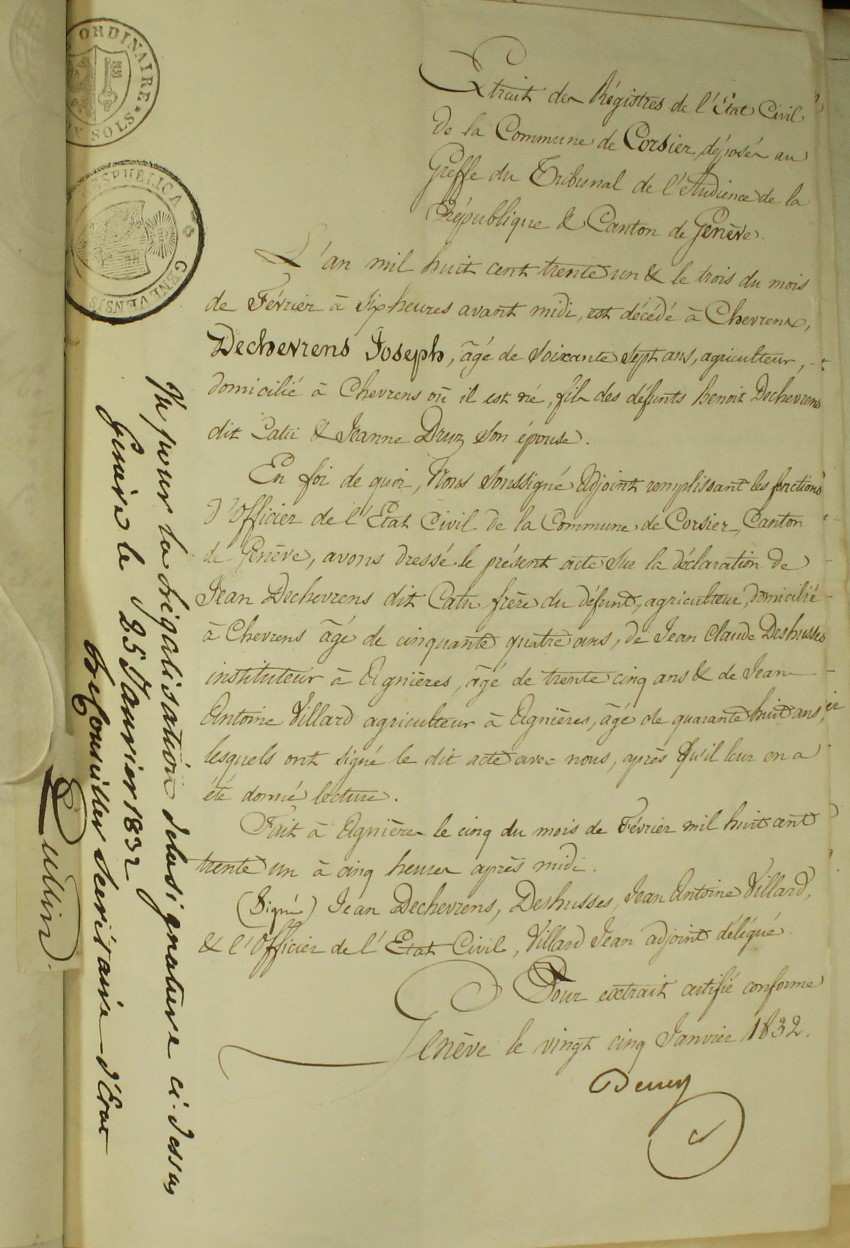 ORDINAIRE
SOLS
RESPUBLICA
GENEVENSIS
Extrait des Régistres de l'État Civil
de la Commune de Corsier, déposés au
Greffe du Tribunal de l'Audience de la
République & Canton de Genève.
L'an mil huit cent trente un & le trois du mois
de Février à Six heures avant midi, est décédé à Chevrens,
Dechevrens Joseph, âgé de soixante sept ans, agriculteur,
domicilié à Chevrens où il est né, fils des défunts Benoit Dechevrens
dit Catu & Jeanne Druz son épouse.
En foi de quoi, Nous soussigné Adjoint remplissant les fonctions
d'Officier de l'État Civil de la Commune de Corsier, Canton
de Genève, avons dressé le présent acte sur la déclaration de
Jean Dechevrens dit Catu frère du défunt, agriculteur, domicilié
à Chevrens âgé de cinquante quatre ans, de Jean Claude Deshusses
instituteur à Agnières, âgé de trente cinq ans & de Jean
Antoine Villard agriculteur à Agnières, âgé de quarante huit ans,
lesquels ont signé le dit acte avec nous, après qu'il leur en a
été donné lecture.
Fait à Agnières le cinq du mois de Février mil huit cent
trente un à cinq heures après midi.
(Signé) Jean Dechevrens, Deshusses, Jean Antoine Villard,
& l'Officier de l'Etat Civil, Villard Jean adjoint délégué.
Pour extrait certifié conforme
Genève le vingt cinq Janvier 1832.
Vu pour la Légalisation de la signature ci-dessus
Genève le 25 Janvier 1832
Le Conseiller Secrétaire d'Etat
Lullin